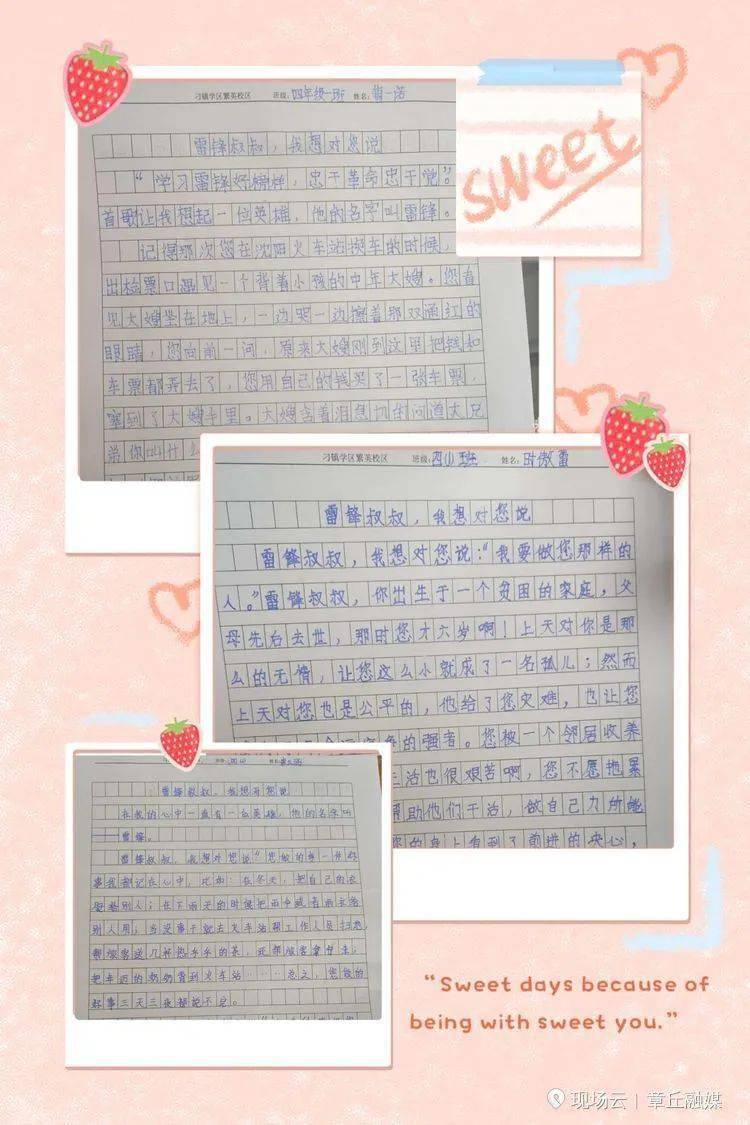 刁镇学区繁英校区 班级:四年级一班 姓名:
sweet
雷锋叔叔，我想对您说
“学习雷锋好榜样，忠于革命忠于党”。
首歌让我想起一位英雄，他的名字叫雷锋。
记得那次您在沈阳火车站换车的时候，
出检票口遇见一个背着小孩的中年大嫂。您看
见大嫂坐在地上，一边哭一边擦着那双通红的
眼睛，您向前一问，原来大嫂刚到这里把钱和
车票都弄丢了，您用自己的钱买了一张车票，
塞到了大嫂手里。大嫂含着泪急切的问道大兄
弟你叫什
刁镇学区繁英校区 班级:四(1)班 姓名:
雷锋叔叔，我想对您说
雷锋叔叔，我想对您说：“我要做您那样的
人。”雷锋叔叔，你出生于一个贫困的家庭，父
母先后去世，那时您才六岁啊！上天对你是那
么的无情，让您这么小就成了一名孤儿；然而
上天对您也是公平的，他给了您灾难，也让您
的强者。您被一个邻居收养
生活也很艰苦啊，您不愿拖累
帮助他们干活，做自己力所能
你的身上看到了前进的决心，
雷锋叔叔，我想对您说
在我的心中一直有一位英雄，他的名字叫
——雷锋。
雷锋叔叔，我想对您说“您做的每一件好
事我都记在心中，比如：在冬天，把自己的衣
服给别人；在下雨天的时候把雨伞或者雨衣给
别人用；当没事干就去火车站帮工作人员扫地，
帮旅客送几杯热乎乎的茶，还帮旅客拿行李；
把年迈的奶奶背到火车站……总之，您做的
好事三天三夜都说不完。
“Sweet days because of
being with sweet you.”
现场云 | 章丘融媒